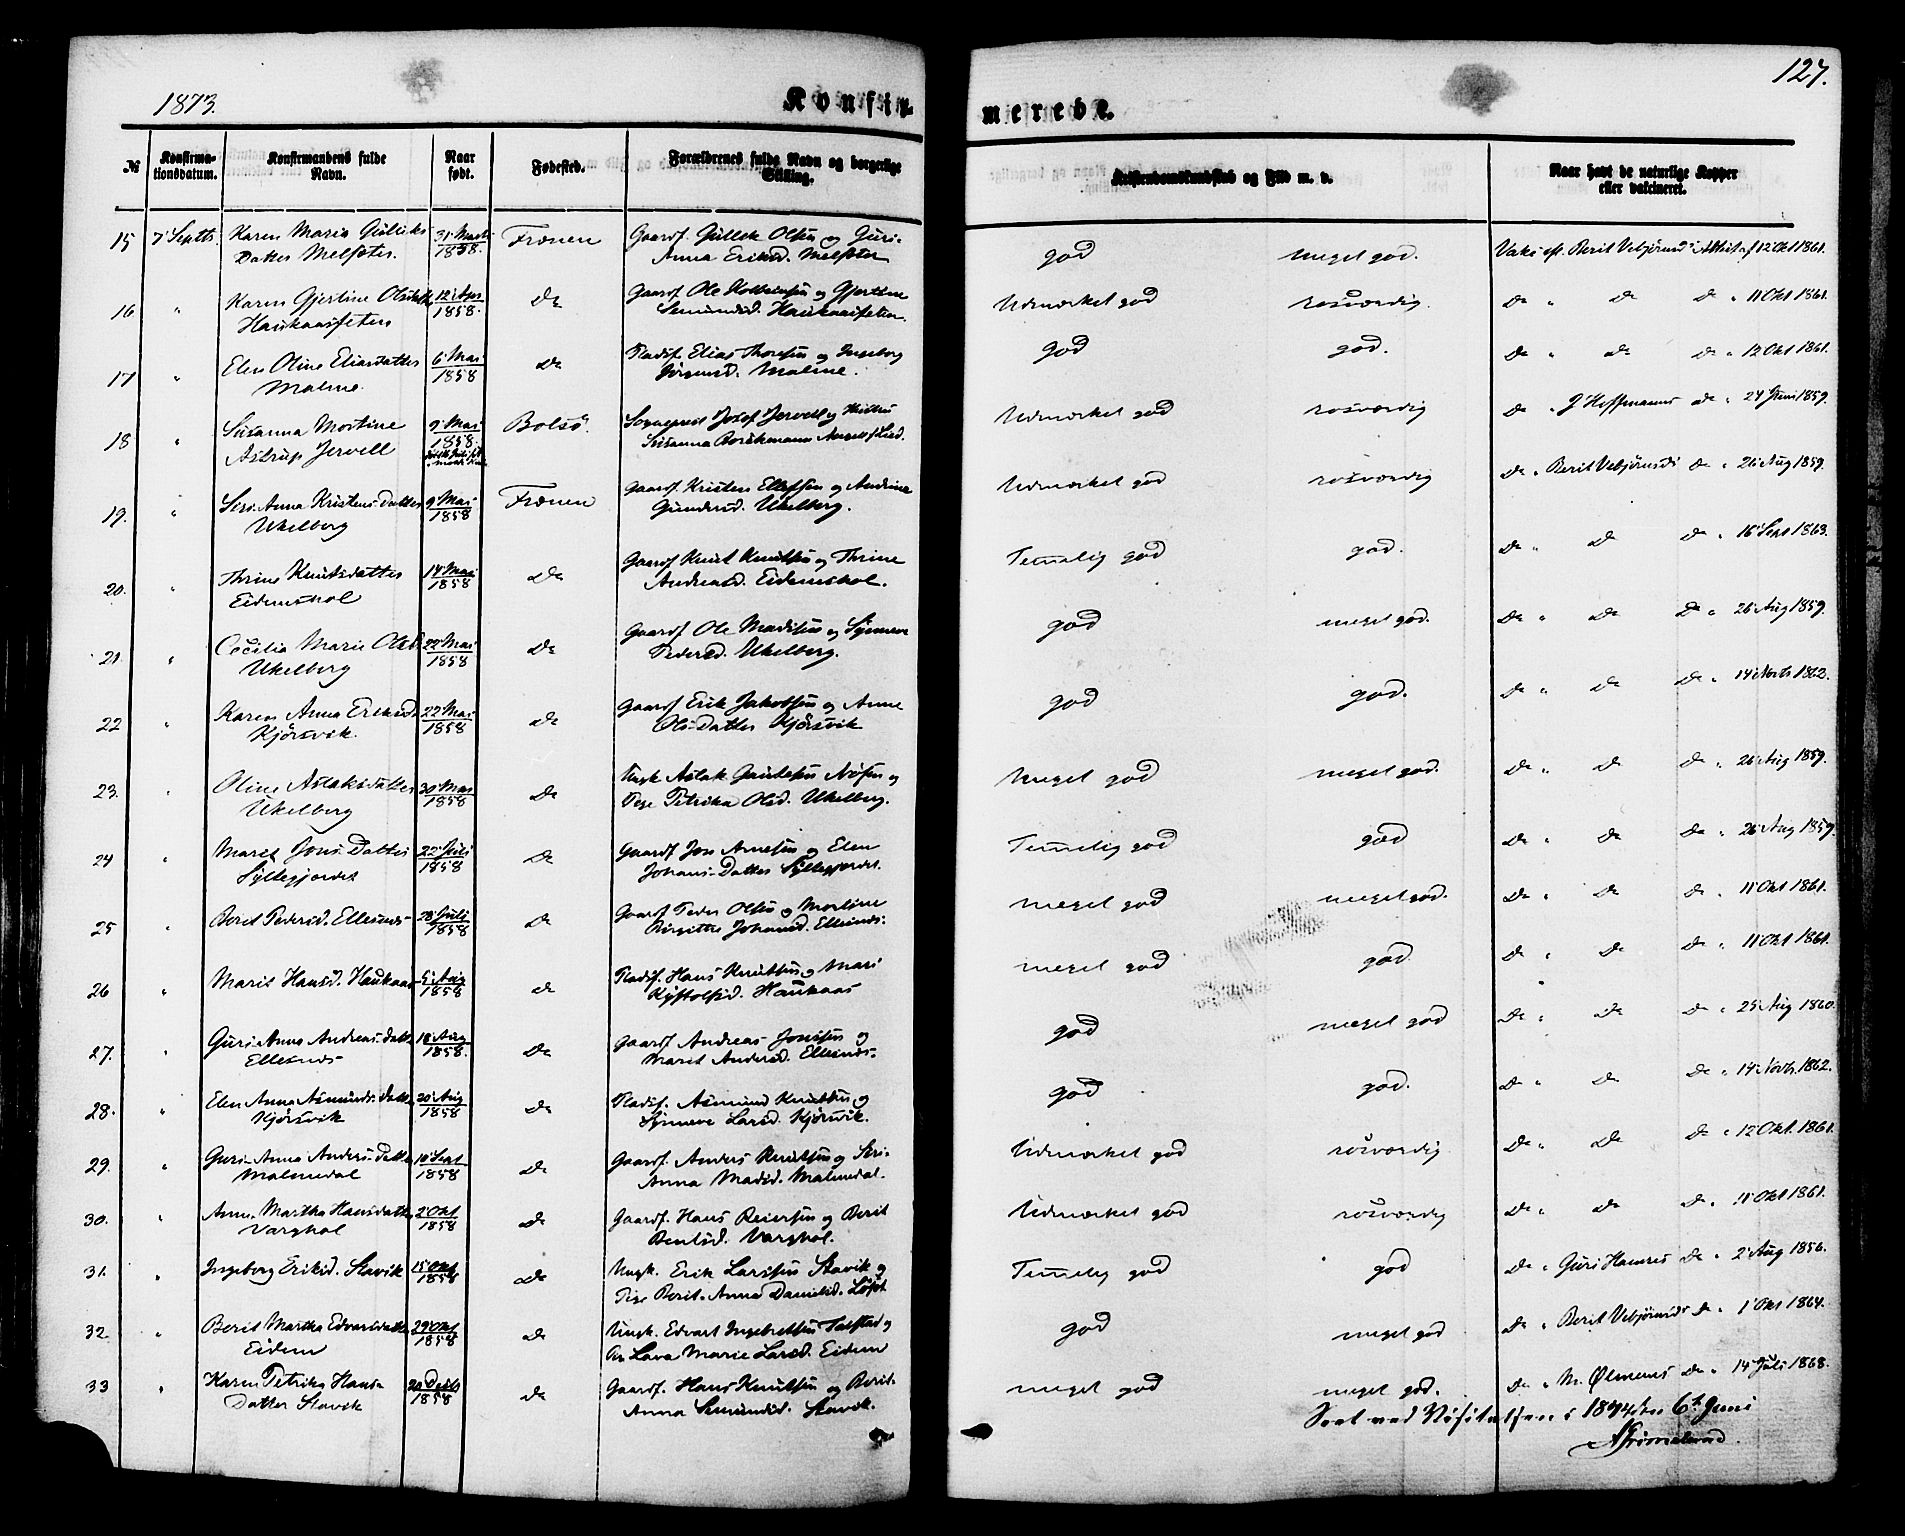 1873.
Konfir-
merede.
127.
№
Konfirma-
tionsdatum.
Konfirmandens fulde
Navn.
Naar
født.
Fødested.
Forældrenes fulde Navn og borgerlige
Stilling.
Kristendomskundskab og Flid m. v.
Naar havt de naturlige Kopper
eller vaksineret.
15 7 Septb. Karen Maria Gulliks 31 Marts Frænen Gaardf. Gullik Olsen og Guri- god meget god. Vaks. ef. Berit Vebjörnsd. Attest af 12 Okt 1861.
Datter Melsæter. 1858. Anna Eriksd. Melsæter
16 " Karen Gjertine Olsdatter 12 Apr Do Gaardf Ole Kolbeinsen og Gjertine Udmærket god rosværdig. Do " Do Do " 11 Okt 1861.
Haukaassæteren 1858. Semundsd. Haukaassæter.
17 " Elen Oline Eliasdatter 6 Mai Do Pladsf. Elias Thoresen og Ingeborg god god. Do " Do Do " 12 Okt 1861.
Malme. 1858 Jörgensd. Malme.
18 " Susanna Mortine 9 Mai Bolsö. Sognepræst Josef Jervell og Hustru Udmærket god rosværdig Do " J Hoffmanns do " 24 Juni 1859.
Astrup Jervell 1858. Susanna Angell Lied.
19. " Siri Anna Kristens Datter 9 Mai Frænen Gaardf. Kristen Ellefsen og Andrine Udmærket god rosværdig Do " Berit Vebjörnsds Do " 26 Aug 1859.
Ukelberg 1858 Gundersd. Ukelberg.
20. " Thrine Knutsdatter 14 Mai Do Gaardf Knut Knutsen og Thrine Temelig god god. Do " Do Do " 16 Sept 1863.
Eidemshol 1858 Andreasd. Eidemshol.
21. " Cecilia Marie Olsd. 22 Mai Do Gaardf Ole Madssen og Synneve god meget god. Do " Do Do " 26 Aug 1859.
Ukelberg 1858 Pedersd. Ukelberg.
22 " Karen Anna Eriksd. 22 Mai Do Gaardf Erik Jakobsen og Anne god god. Do " Do Do " 14 Novb. 1862.
Kjörsvik. 1858 Ols-Datter Kjörsvik
23. " Oline Aslaksdatter 30 Mai Do Ungk Aslak Gautesen og meget god meget god. Do " Do Do " 26 Aug 1859.
Ukelberg 1858 Pige Petrika Olsd. Ukelberg.
24 " Marit Jons Datter 22 Juli Do Gaardf Jon Arnesen og Elen Temelig god god Do " Do Do " 26 Aug 1859.
Syltegjerdet 1858 Johans-Datter Syltegjerdet.
25 " Berit Pedersd. Ellesnes 28 Juli Do Gaardf Peder Olsen og Mortine meget god meget god. Do " Do Do " 11 Okt 1861.
1858 Birgitte Johansd. Ellesnes.
26 " Marit Hansd. Haukaas 5 Aug Do Pladsf. Hans Knutsen og Mari meget god god. Do " Do Do " 11 Okt 1861.
1858 Haukaas
27. " Guri-Anna Andreas-datter 18 Aug Do Gaardf Andreas Jonsen og god meget god Do " Do Do " 25 Aug 1860.
Ellesnes 1858. Marit Andersd. Ellesnes.
28. " Elen Anna Asmunds-datter 20 Aug Do Pladsf. Asmund Knutsen og god god. Do " Do Do " 14 Novb. 1862.
Kjörsvik 1858 Synneve Larsd. Kjörsvik.
29. " Guri-Anna Anders-Datter 10 Sept Do Gaardf. Anders Knutsen og Siri- Udmærket god rosværdig Do " Do Do " 12 Okt. 1861.
Malmedal 1858 Anna Madsd. Malmedal.
30. " Anne Martha Hansdatter 2 Okt Do Gaardf. Hans Reiersen og Berit Udmærket god rosværdig Do " Do Do " 11 Okt 1861.
Varghol 1858 Bentsd. Varghol.
31. " Ingeborg Eriksd. Stavik 15 Okt Do Ungk. Erik Larssen Stavik og Temelig god god Do " Guri Hamres Do " 2 Aug 1856.
1858 Pige Berit-Anna Danielsd.
32. " Berit Martha Edvardsdatter 29 Okt Do Ungk. Edvart Ingebretsen Talstad og god meget god Do " Berit Vebjörnsds Do " 1 Okt 1864.
Eidem 1858 Lava Marie Larsd. Eidem
33 " Karen Petrika Hans- 20 Decbr Do Gaardf. Hans Knutsen og Berit- meget god meget god. Do " M. Ølmems Do " 14 Juli 1868.
Datter Stavik 1858 Anna Semundsd. Stavik.
Seet ved Visitatsen i 1874 den 6te Juni
AGrimelund.